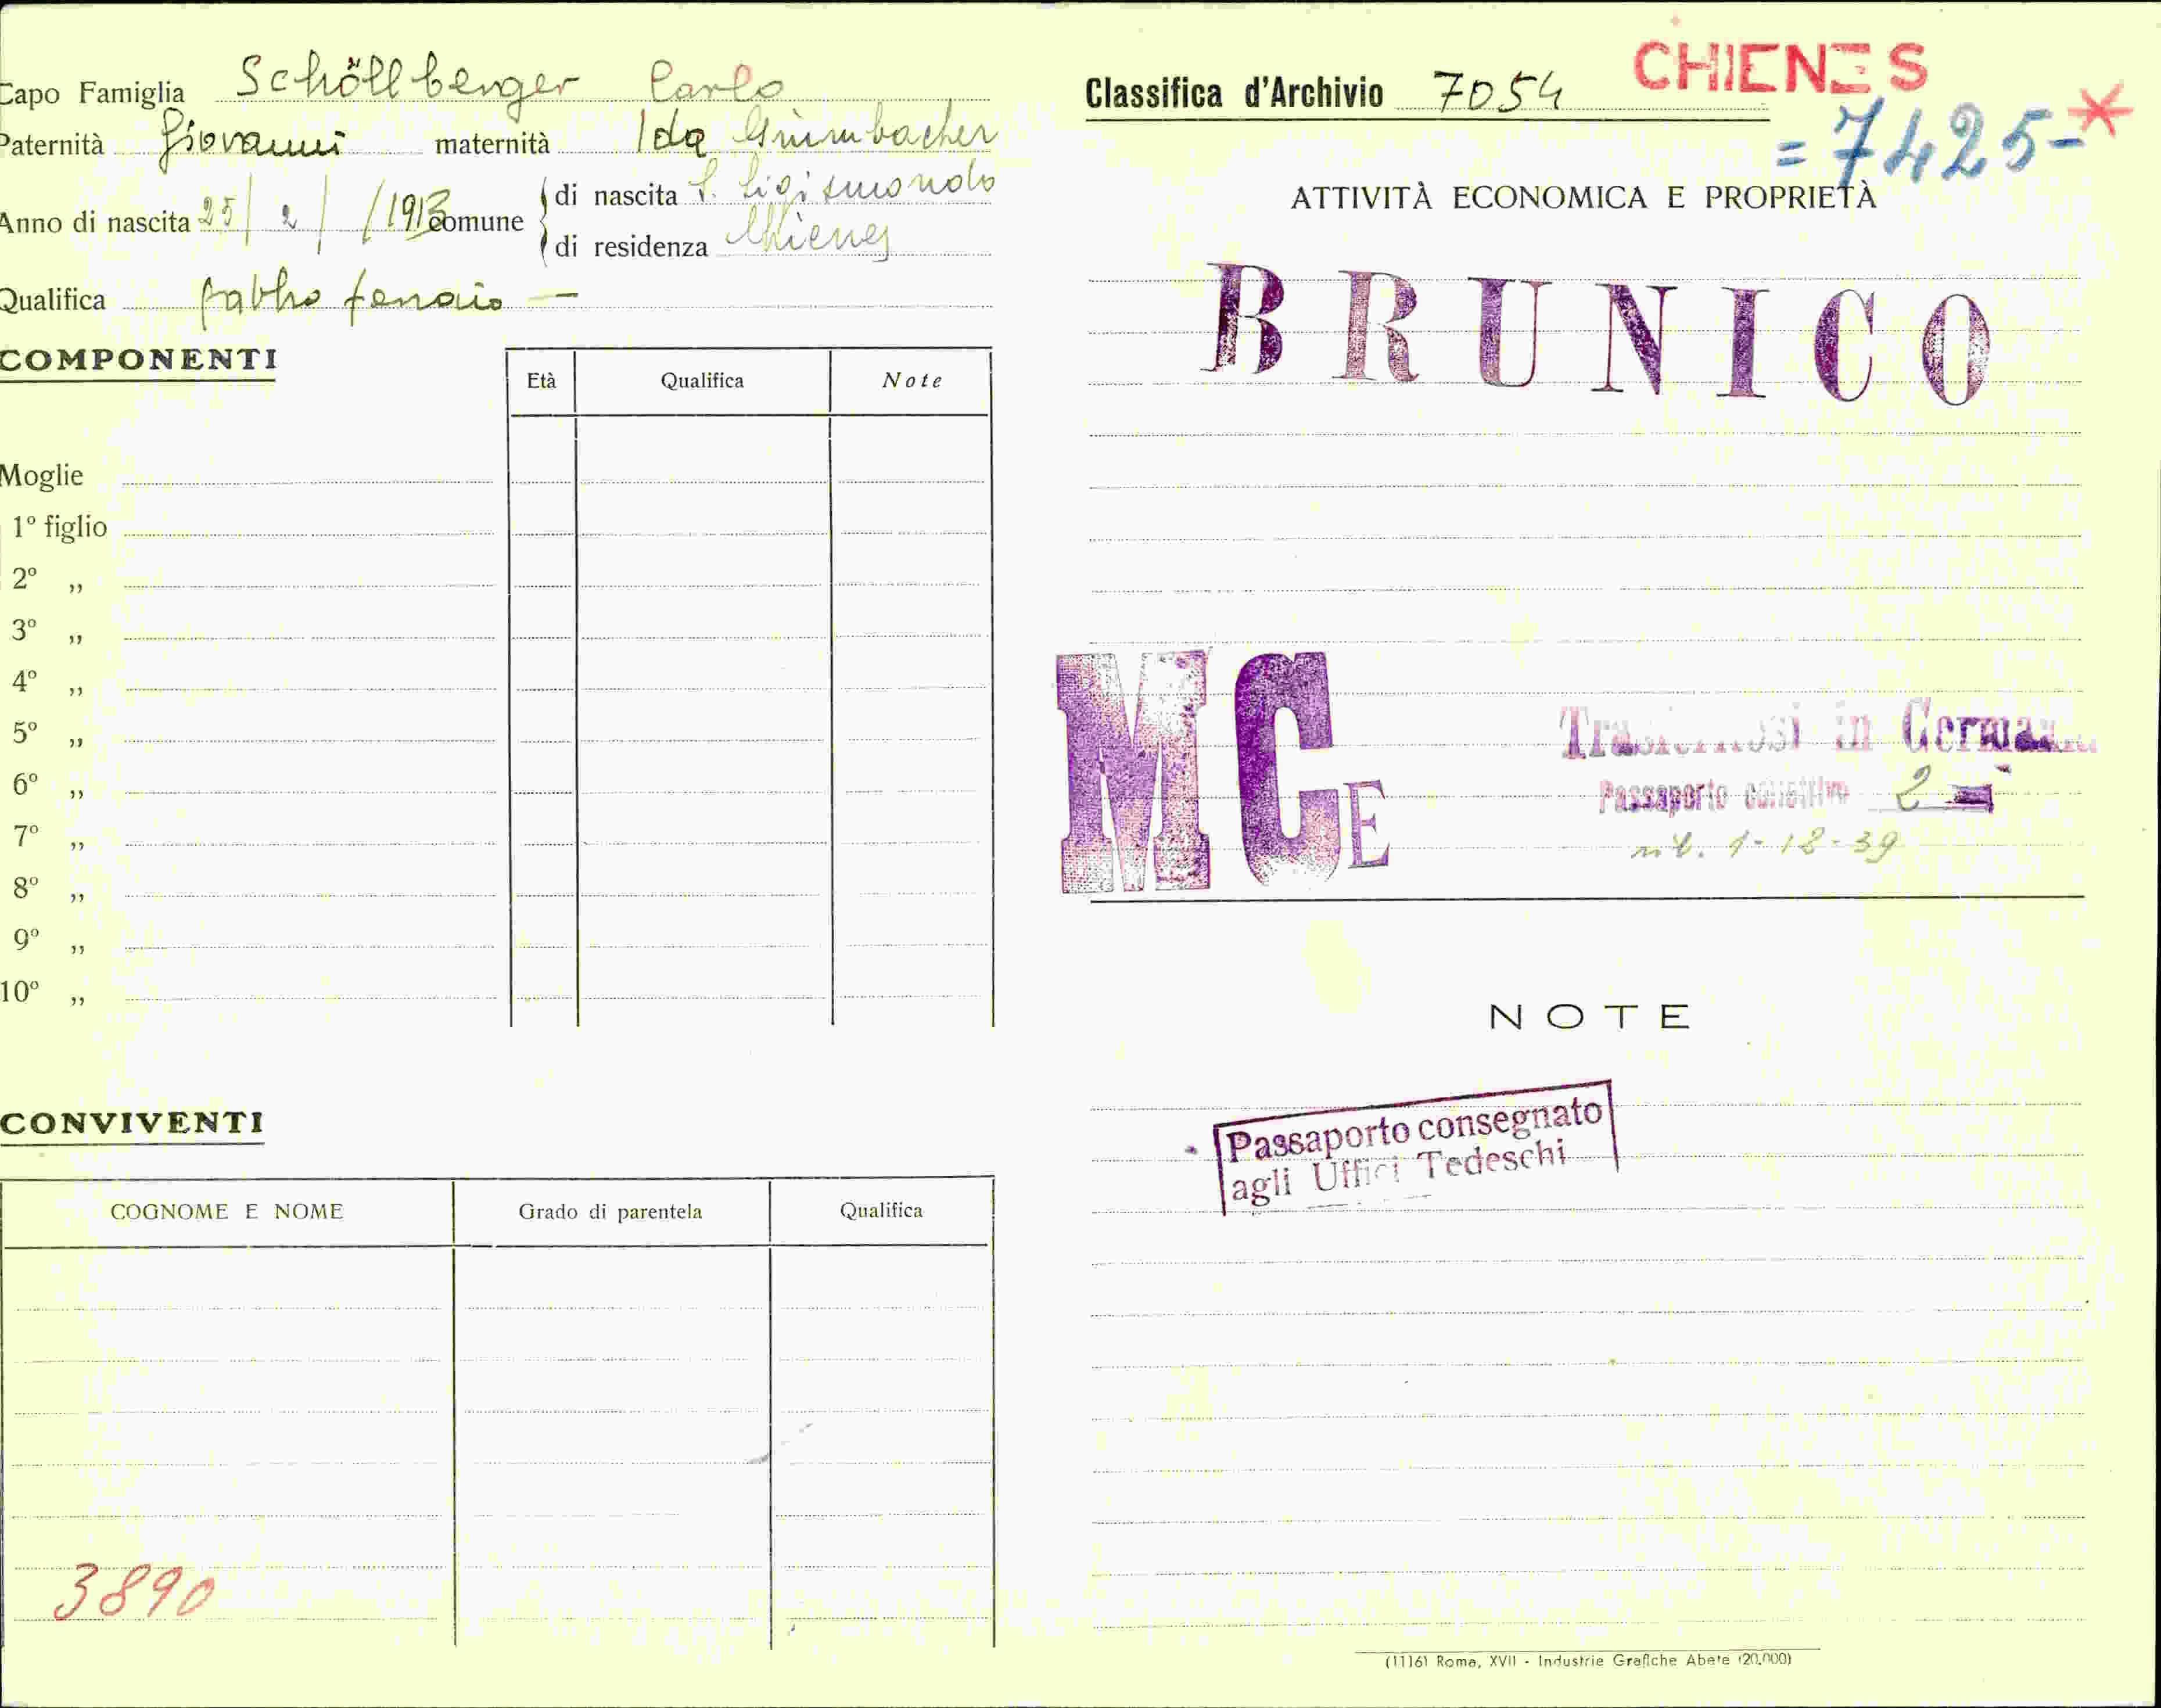 Capo Famiglia Schöllberger Carlo
Paternità Giovanni maternità Ida
Anno di nascita 25/2/1913 comune di nascita S. Sigismondo
di residenza Chienes
Qualifica fabbro ferraio —
COMPONENTI
Età Qualifica Note
Moglie
1º figlio
2º ,,
3º ,,
4º ,,
5º ,,
6º ,,
7º ,,
8º ,,
9º ,,
10º ,,
CONVIVENTI
COGNOME E NOME Grado di parentela Qualifica
3890
CHIENES
Classifica d'Archivio 7054
= 7425-*
ATTIVITÀ ECONOMICA E PROPRIETÀ
BRUNICO
MCE
Trasferitosi in Germania
Passaporto collettivo 2
1-12-39
NOTE
Passaporto consegnato
agli Uffici Tedeschi
(1116) Roma, XVII - Industrie Grafiche Abete (20.000)